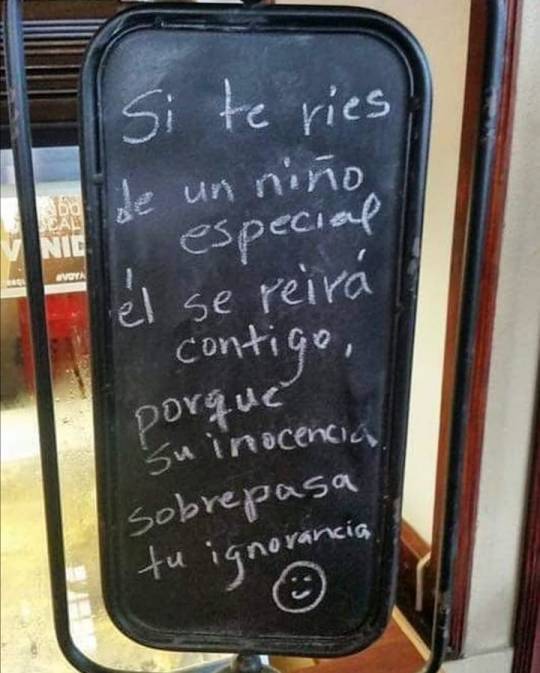 Si te ries
de un niño
especial
él se reirá
contigo,
porque
su inocencia
sobrepasa
tu ignorancia